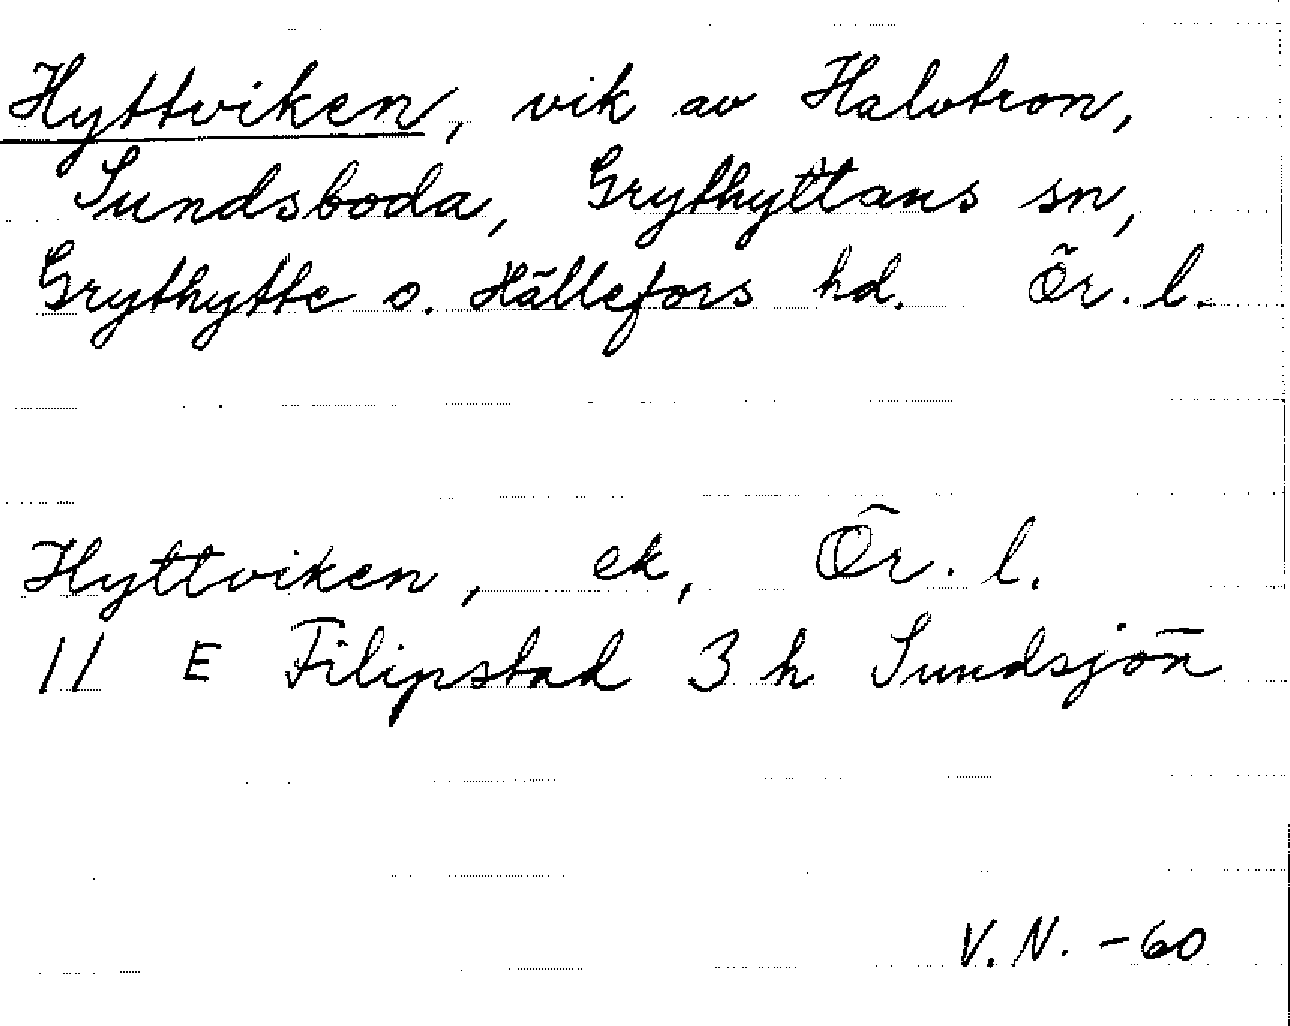 Hyttviken, vik av Halvtron,
Sundsboda, Grythyttans sn,
Grythytte o. Hällefors hd. Ör. l.
Hyttviken, ek, Ör. l.
11 E Filipstad 3 h Sundsjön
V. N. -60